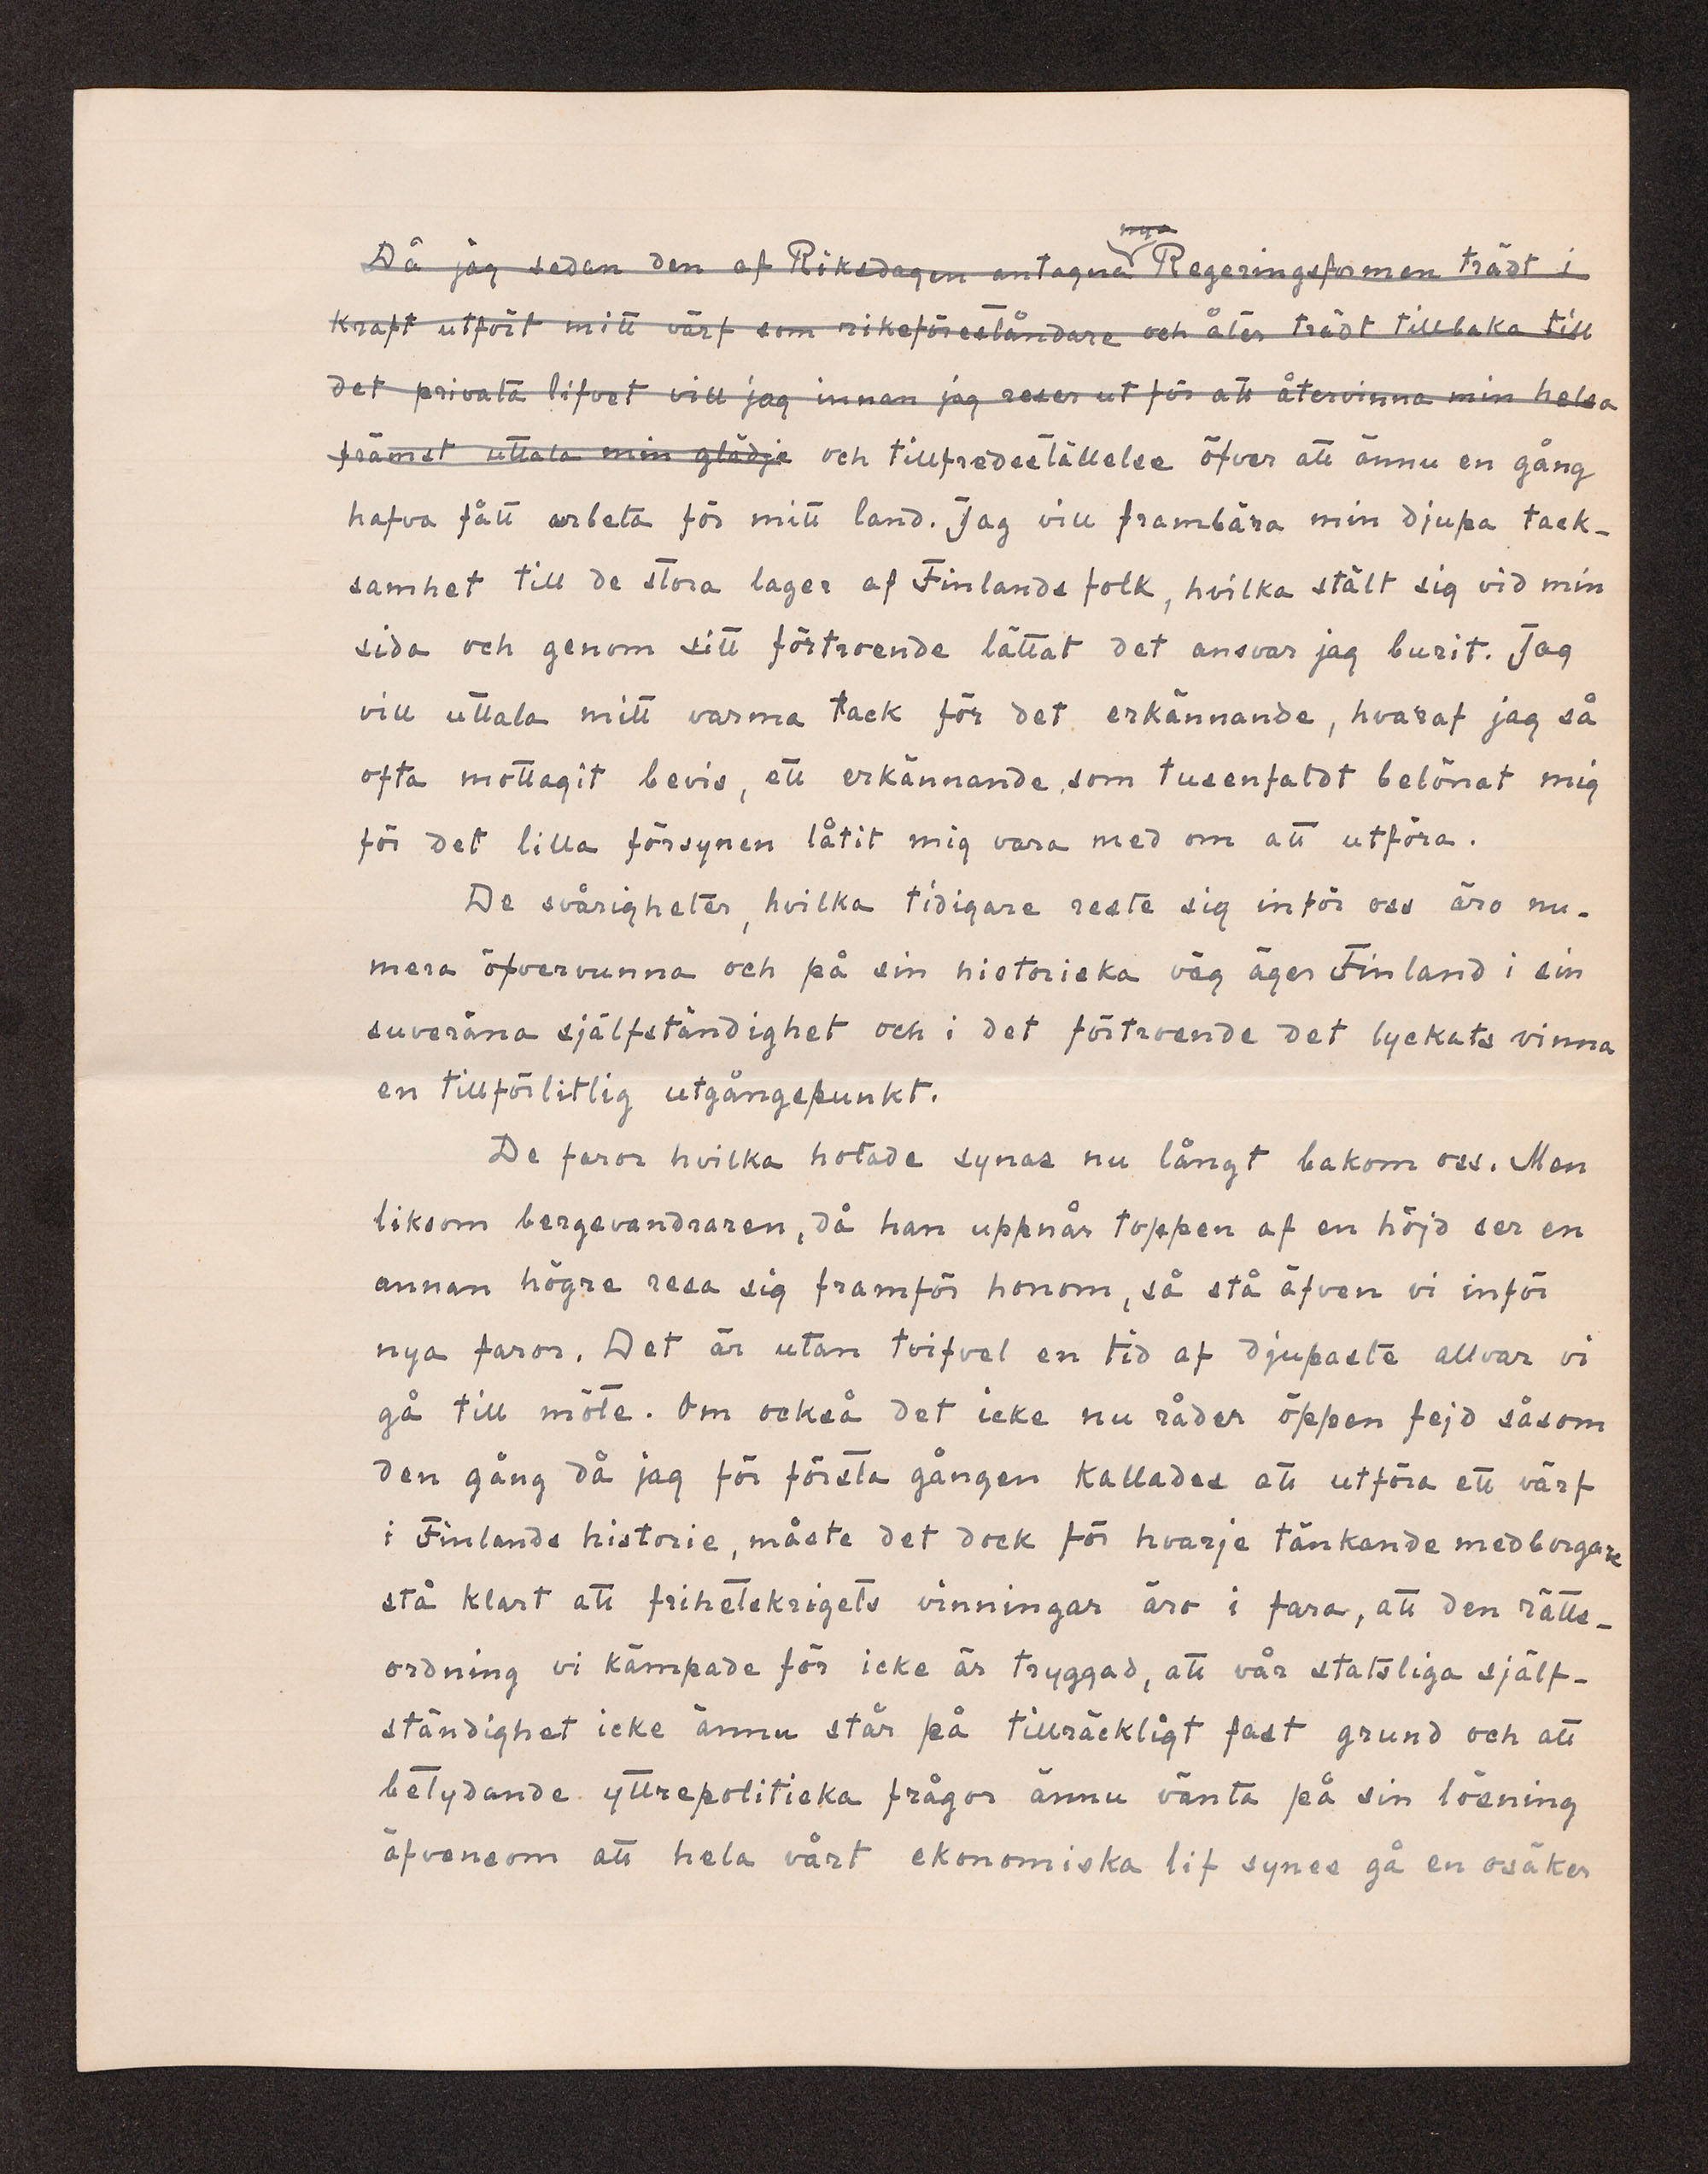 nya
Då jag sedan den af Riksdagen antagna Regeringsformen trädt i
kraft utfört mitt värf som riksföreståndare och åter trädt tillbaka till
det privata lifvet vill jag innan jag reser ut för att återvinna min helsa
främst uttala min glädje och tillfredsställelse öfver att ännu en gång
hafva fått arbeta för mitt land. Jag vill frambära min djupa tack-
samhet till de stora lager af Finlands folk, hvilka stält sig vid min
sida och genom sitt förtroende lättat det ansvar jag burit. Jag
vill uttala mitt varma tack för det erkännande, hvaraf jag så
ofta mottagit bevis, ett erkännande som tusenfaldt belönat mig
för det lilla försynen låtit mig vara med om att utföra.
De svårigheter, hvilka tidigare reste sig inför oss äro nu-
mera öfvervunna och på sin historiska väg äger Finland i sin
suveräna själfständighet och i det förtroende det lyckats vinna
en tillförlitlig utgångspunkt.
De faror hvilka hotade synas nu långt bakom oss. Men
liksom bergsvandraren, då han uppnår toppen af en höjd ser en
annan högre resa sig framför honom, så stå äfven vi inför
nya faror. Det är utan tvifvel en tid af djupaste allvar vi
gå till möte. Om också det icke nu råder öppen fejd såsom
den gång då jag för första gången kallades att utföra ett värf
i Finlands historie, måste det dock för hvarje tänkande medborgare
stå klart att frihetskrigets vinningar äro i fara, att den rätts-
ordning vi kämpade för icke är tryggad, att vår statsliga själf-
ständighet icke ännu står på tillräckligt fast grund och att
betydande yttrepolitiska frågor ännu vänta på sin lösning
äfvensom att hela vårt ekonomiska lif synes gå en osäker